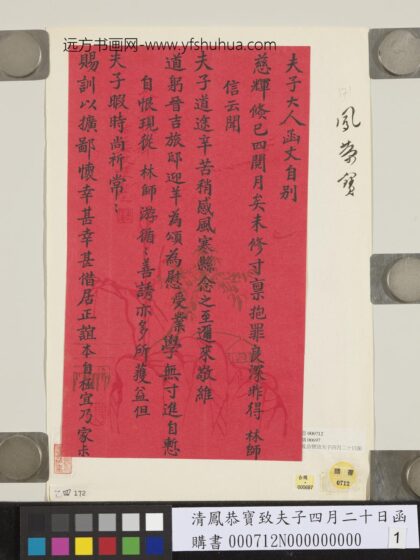 远方书画网-www.yfshuhua.com
夫子大人函丈自别
慈輝倏已四閱月矣未修寸稟抱罪良深昨得 林師
信云聞
夫子道途辛苦稍感風寒縣念之至邇來敬維
道躬晉吉旅邸迎羊為頌為慰受業學無寸進自慙
自恨現從 林師游循〻善誘亦多所獲益但
夫子暇時尚祈常〻
賜訓以擴鄙懷幸甚幸甚借居正誼本自極宜乃家
171
鳳恭寶
000712
00697
鳳恭寶致夫子四月二十日函
000697
購書
0712
四 172
清鳳恭寶致夫子四月二十日函
購書 000712N000000000
1